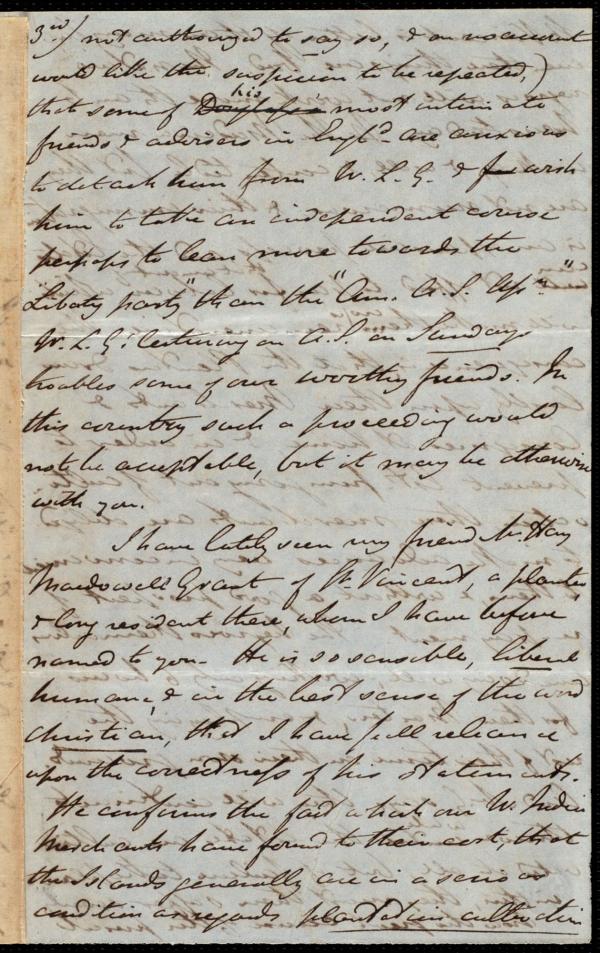 3rd) not authorized to say so, & on no account
would like the suspicion to be repeated,)
that some of his most intimate
friends & advisers in Engld. are anxious
to detach him from W. L. G. & wish
him to take an independent course
perhaps to lean more towards the
"Liberty party" than the "Am. A. S.
W. L. G's lecturing on A. S. on Sundays
troubles some of our worthy friends. In
this country such a proceeding would
not be acceptable, but it may be otherwise
with you.
I have lately seen my friend Mr. Hay
Macdowell Grant of St. Vincent, a planter
& long resident there, whom I have before
named to you. He is so sensible, liberal
humane, & in the best sense of the word
Christian, that I have full reliance
upon the correctness of his statements.
He confirms the fact which our W. India
Merchants have found to their cost, that
the Islands generally are in a serious
condition as regards plantation cultivation